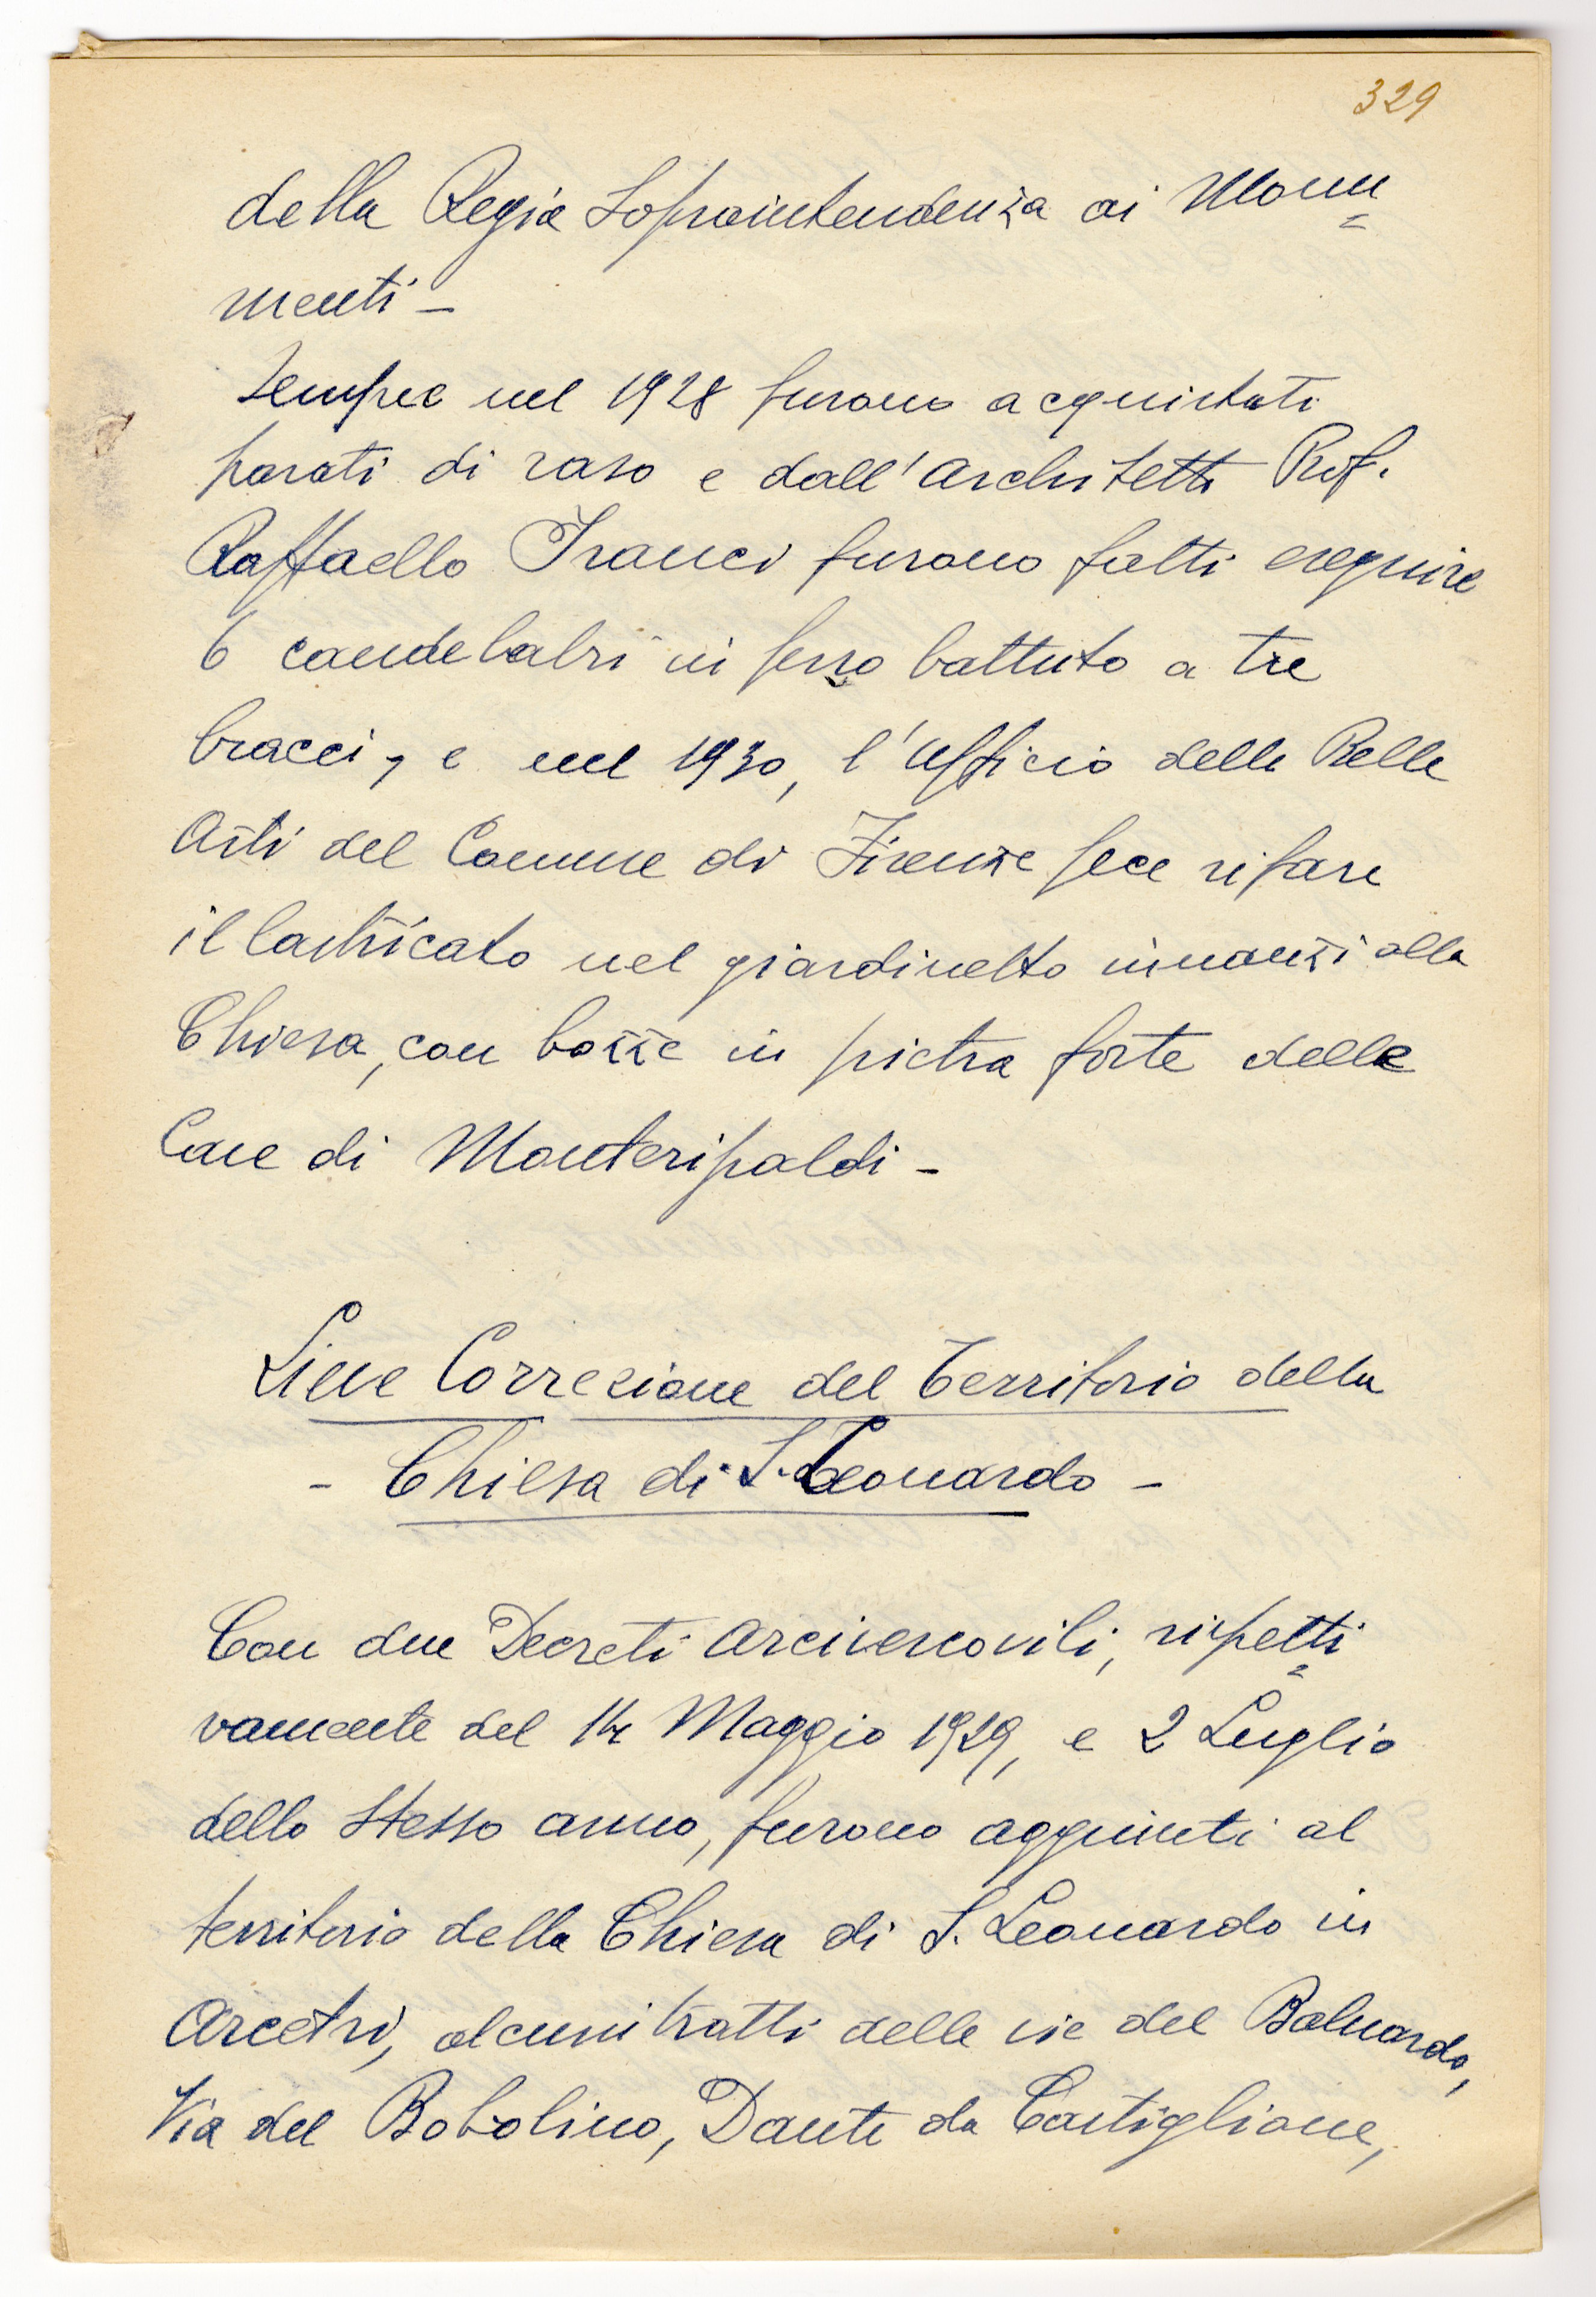 329
della Regia Soprointendenza ai Monu=
menti -
Sempre nel 1928 furono acquistati
parati di raso e dall'Architetto Prof.
Raffaello Franci furono fatti eseguire
6 candelabri in ferro battuto a tre
bracci, e nel 1930, l'Ufficio delle Belle
Arti del Comune di Firenze fece rifare
il lastricato nel giardinetto innanzi alla
Chiesa, con bozze in pietra forte delle
Cave di Monteripaldi -
Lieve Correzione del Territorio della
- Chiesa di S. Leonardo -
Con due Decreti Arcivescovili, rispetti=
vamente del 14 Maggio 1929, e 2 Luglio
dello stesso anno, furono aggiunti al
territorio della Chiesa di S. Leonardo in
Arcetri, alcuni tratti delle vie del Baluardo,
Via del Bobolino, Dante da Castiglione,